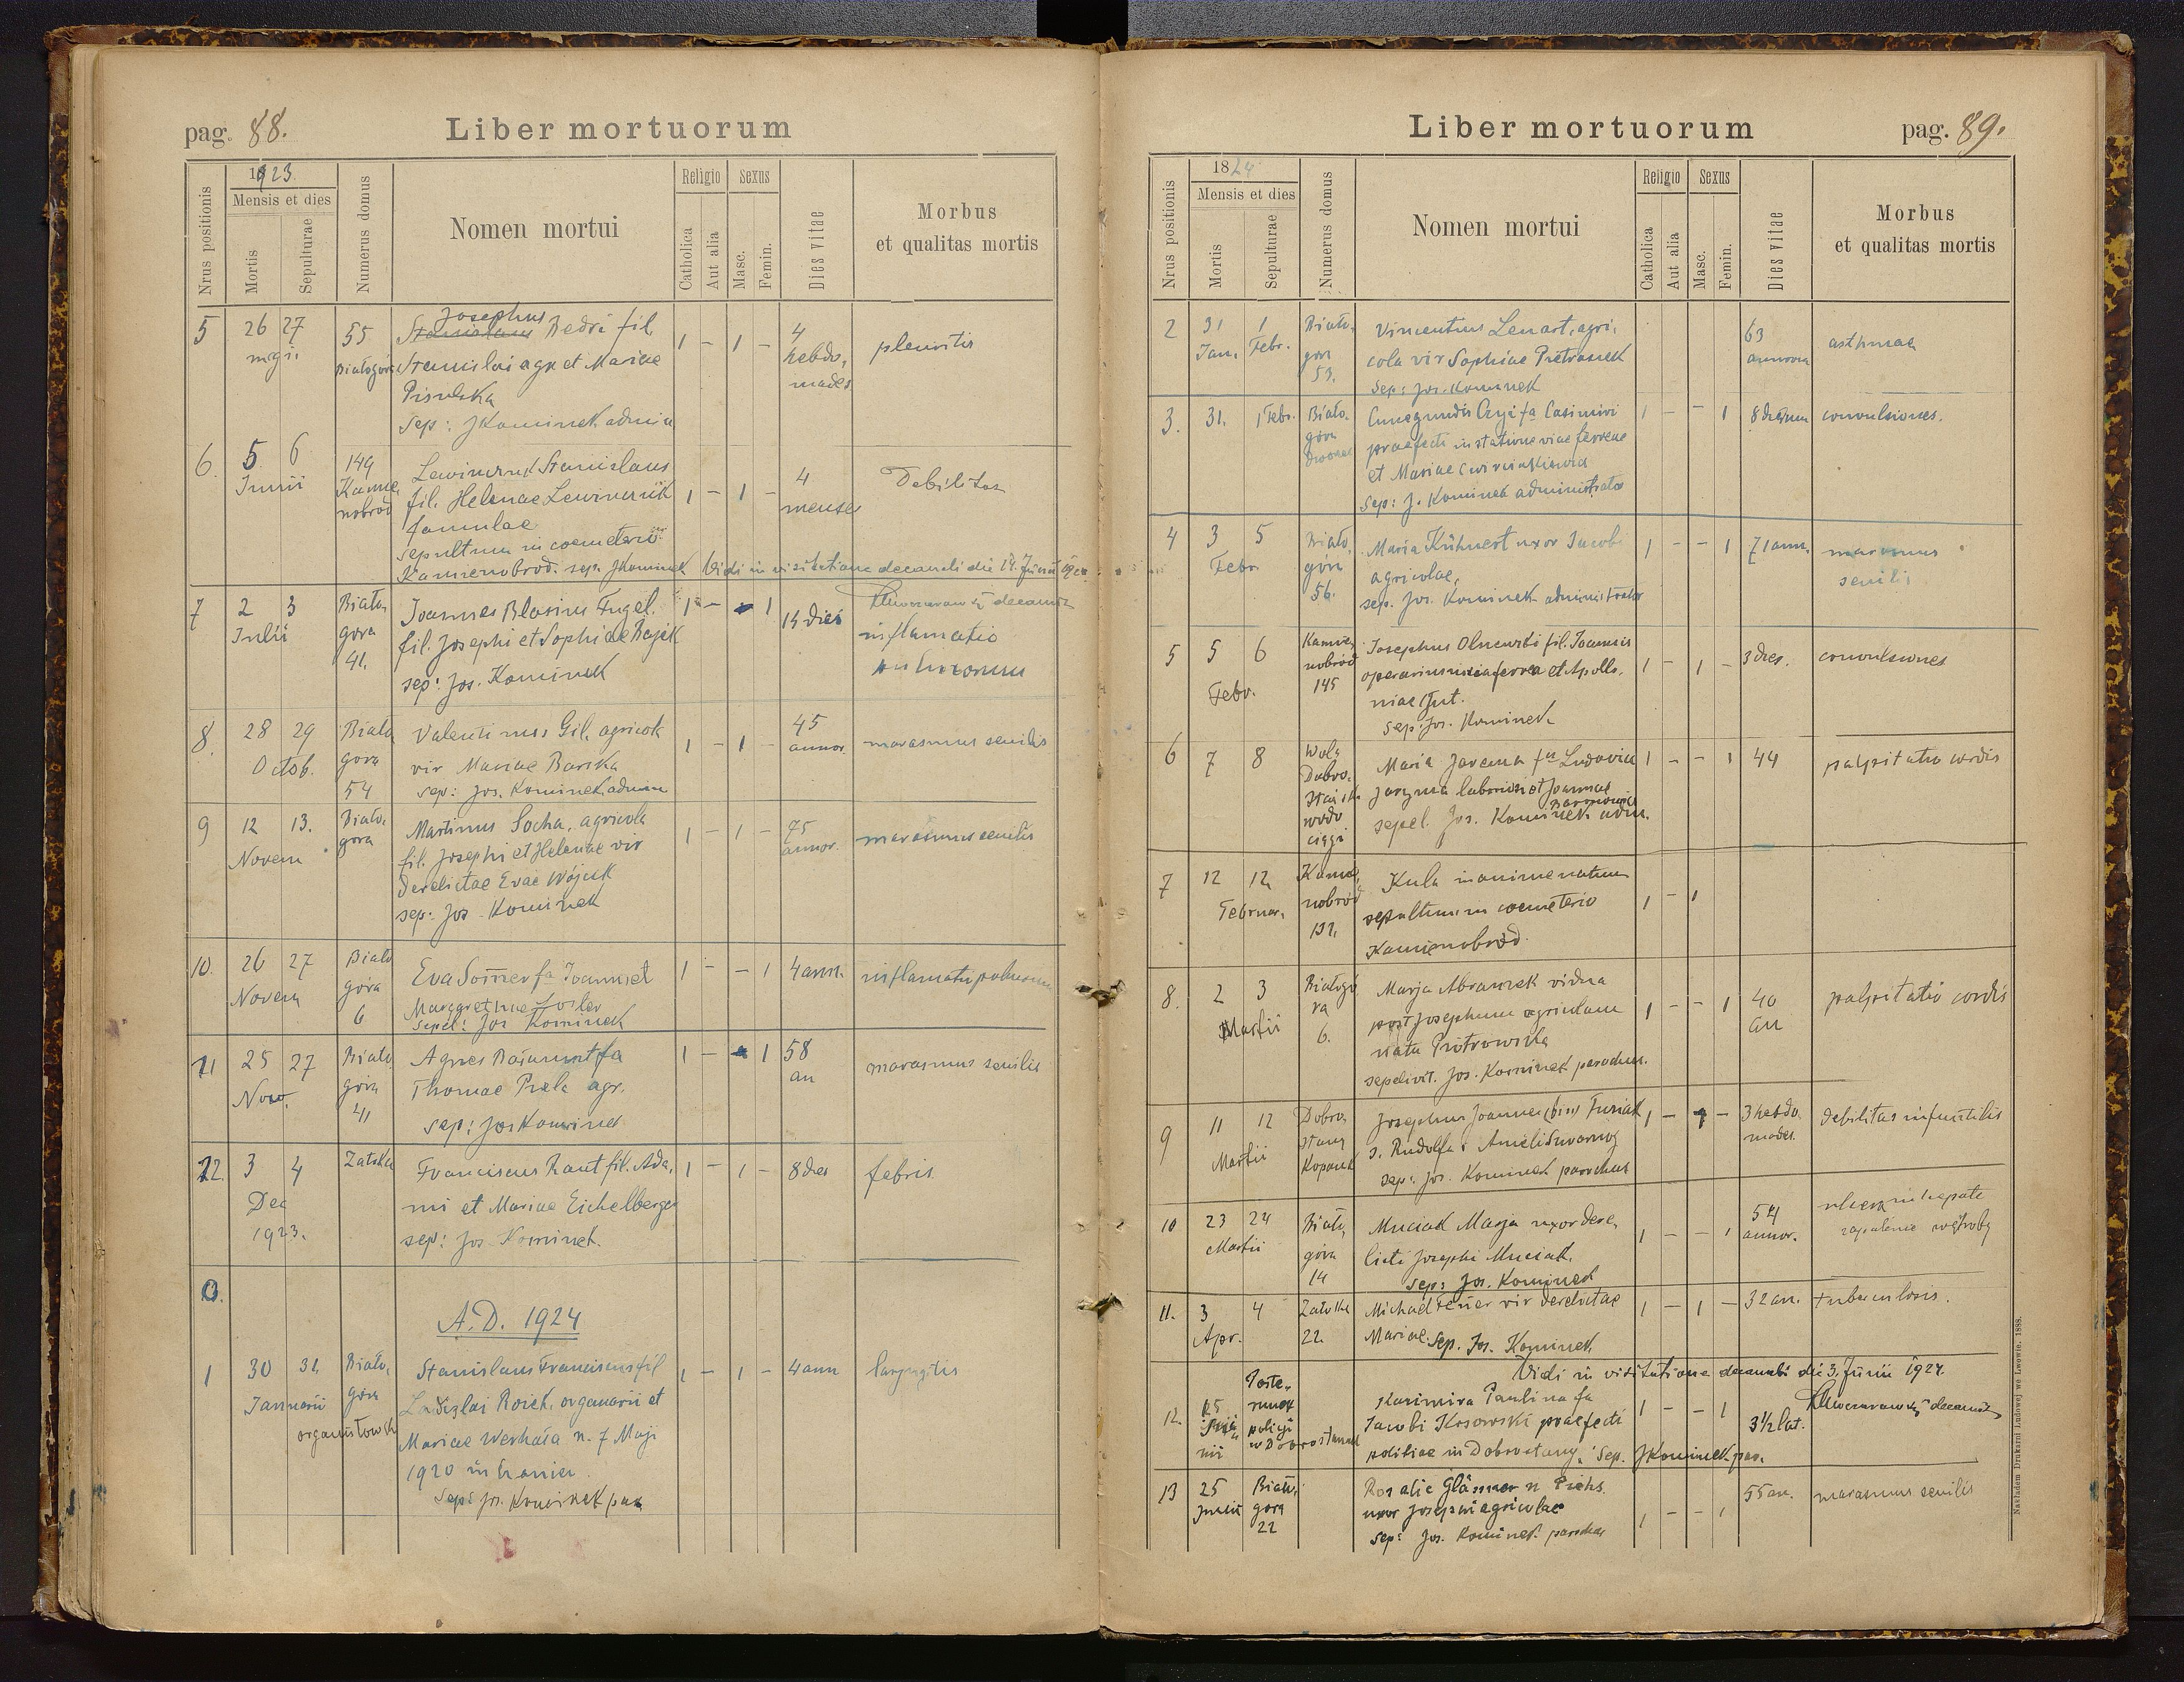 pag. 88.
Liber mortuorum
Nrus positionis
1923.
Mensis et dies
Mortis
Sepulturae
Numerus domus
Nomen mortui
Religio
Catholica
Aut alia
Sexus
Masc.
Femin.
Dies vitae
Morbus
et qualitas mortis
5 26 27 55 Josephus
Stanislaus Bedri fil. 1 - 1 - 4 pleuritis
Białogóra Stanislai agr et Mariae hebdo,
Pisulska mades
Sep: JKominek admin
6. 5 6 149 Lewinczuk Stanislaus 4 Debilitas
Junii Kamie, fil. Helenae Lewinczuk 1 - 1 - menses
nobród famulae
sepultum in coemeterio
Kamienobrod. sep. JKominek Vidi in visitatione decanali die 14. Junii
7 2 3 Biało, Joannes Blasius Fugel. 1 - 1 14 dies decanus
Julii gora fil. Josephi et Sophiae Bajik inflamatio
41. sep: Jos. Kominek pulmonum
8. 28 29 Biało Valentinus Gil, agricol 1 - 1 - 45 marasmus senilis
Octob. gora vir Mariae Barska annor.
54 sep: Jos. Kominek admin
9 12 13. Biało, Martinus Socha, agricola 1 - 1 - 75 marasmus senilis
Novem gora fil. Josephi et Helenae vir annor.
derelictae Evae Wójcik
sep: Jos. Kominek
10. 26 27 Biało Eva Somer fa Joannis et 1 - - 1 4 ann. inflamatio pulmonum
Novem góra Margarethae
6 Sepel: Jos Kominek
11 25 27 Biało Agnes fa 1 - 1 58 marasmus senilis
Nov. góra Thomae Prela agr. an
41 sep: Jos Kominek
12. 3 4 Zatoka Franciscus Raut fil. Ada, 1 - 1 - 8 dies febris.
Dec mi et Mariae Eichelberger
1923. sep: Jos. Kominek.
A.D. 1924
1 30 31. Biało, Stanislaus Franciscus fil 1 - 1 - 4 ann laryngitis
Januarii góra Ladislai Roick, organarii et
organistówka Mariae n. 7 Maji
1920 in
Sep: Jos. Kominek par
Liber mortuorum
pag. 89.
Nrus positionis
1824
Mensis et dies
Mortis
Sepulturae
Numerus domus
Nomen mortui
Religio
Catholica
Aut alia
Sexus
Masc.
Femin.
Dies vitae
Morbus
et qualitas mortis
2 31 1 Biało, Vincentius Lenart, agri, 63 asthmae
Jan. Febr. gora cola vir Sophiae Pietraszek annorum
53. Sep: Jos. Kominek
3. 31. 1 Febr. Biało, Cunegundis fa Casimiri 1 - - 1 8 dierum convulsiones.
góra praefecti in statione viae ferreae
dworzec et Mariae
Sep: J. Kominek administrator
4 3 5 Biało, Maria Kühnert uxor Jacobi 1 - - 1 71 ann. marasmus
Febr. góra agricolae, senilis
56. sep. Jos. Kominek administrator
5 5 6 Kamie, Josephus Olszewski fil. Joannis 3 dies. convulsiones
Febr. nobród operarius in via ferrea et Apollo, 1 - 1 -
145 niae Gut.
Sep: Jos. Kominek
6 7 8 Wola Maria Jarema fa Ludovici 1 - - 1 44 palpitatio cordis
Dobro, laboriosi et Joannae
wodo sepel. Jos. Kominek adm.
ciągi
7 12 12 Kamie, Kula inanime natum 1 - 1
Februar. nobród sepultum in coemeterio
132. Kamienobród.
8. 2 3 Białogó Marja Abramek vidua 1 - - 1 40 palpitatio cordis
Martii ra post Josephum agricolam an
6. nata Piotrowska
sepelivit. Jos. Kominek parochus.
9 11 12 Dobro, Josephus Joannes (bin) Fusiak 1 - 1 - 3 hebdo. debilitas infantilis
Martii stany s. Rudolfa i Ameli mades.
sep: Jos. Kominek parochus
10 23 24 Biało, Muciak Marja uxor dere, 1 - - 1 54 ulcera in hepate
Martii góra licti Josephi Muciak. annor. zapalenie wątroby
14 Sep: Jos. Kominek
11. 3 4 Zatoka Michael vir derelictae 1 - 1 - 32 an. tuberculosis.
Apr. 22. Mariae. Sep. Jos. Kominek
Vidi in visitatione decanali die 3. Junii 1924.
12. 15 Poste, Kazimira Paulina fa 1 - - 1 3½ lat. decanus
Junii runek Jacobi Kosowski praefecti
policji w Dobrostanach politiae in Dobrostany. Sep. JKominek par.
13 25 Biało, Rosalie Glässner n Piehs. 55 an. marasmus senilis
Junii gora uxor Josephi agricolae 1 - - 1
22 Sep: Jos. Kominek parochus
Nakładem Drukarni Ludowej we Lwowie. 1888.